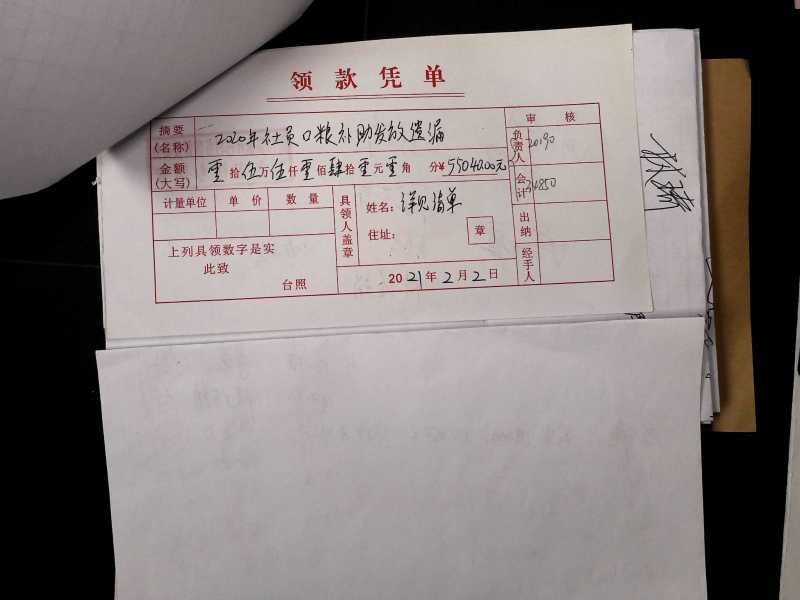 领款凭单
摘要(名称) 2020年社员口粮补助发放遗漏
审核
金额(大写) 零拾伍万伍仟零佰肆拾零元零角 分¥55040.00元
负责人 20190
会计 34850
计量单位 单价 数量
具领人盖章
姓名：详见清单
住址：
章
出纳
经手人
上列具领数字是实
此致
台照
2021年2月2日